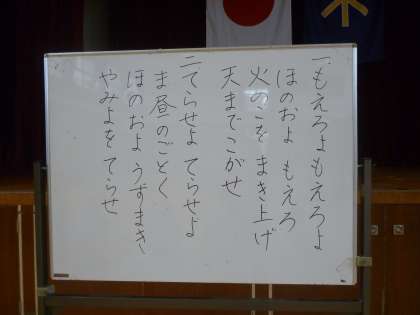 一もえろよもえろよ
ほのおよ もえろ
火のこを まき上げ
天までこがせ
二てらせよ てらせよ
ま昼のごとく
ほのおよ うずまき
やみよを てらせ